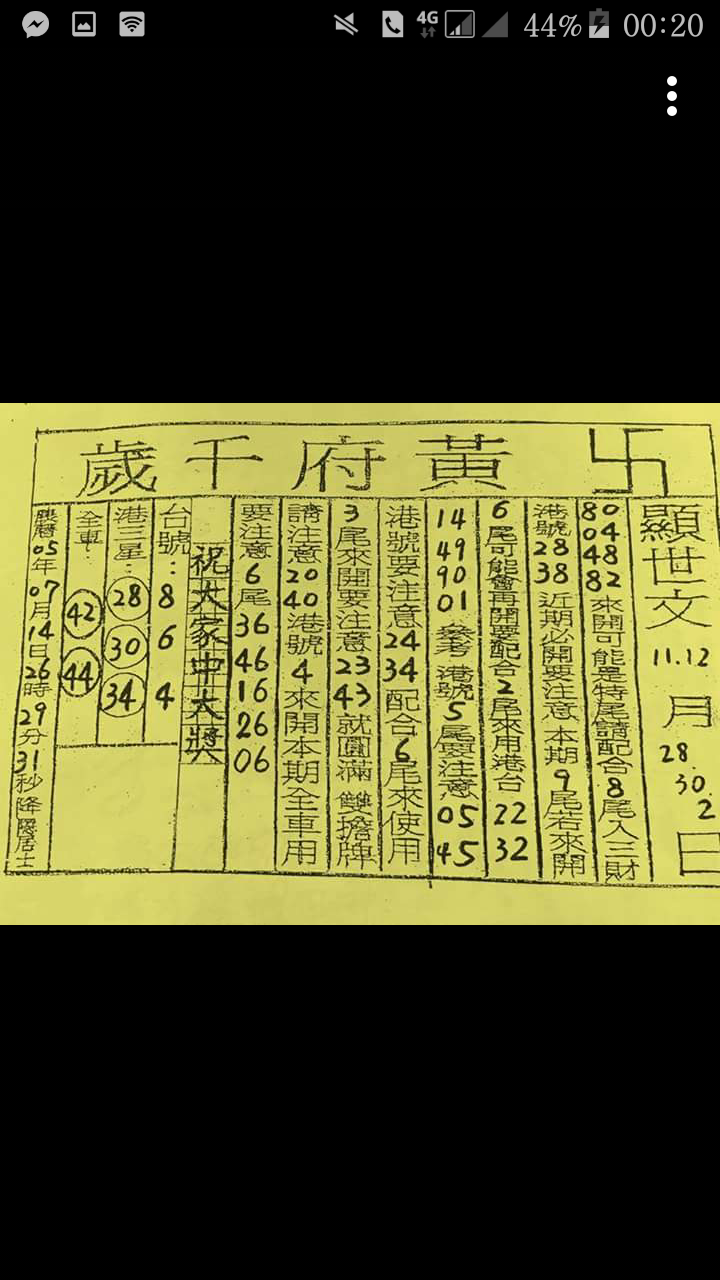 4G 44% 00:20
卐 黃府千歲
顯世文 11.12 月 28. 30. 2 日
80 04 48 82 來開可能是特尾請配合 8 尾入三財
港號 28 38 近期必開要注意 本期 9 尾若來開
6 尾可能會再開要配合 2 尾來用港台 22 32
14 49 90 01 參考 港號 5 尾要注意 05 45
港號要注意 24 34 配合 6 尾來使用
3 尾來開要注意 23 43 就圓滿 雙擔牌
請注意 20 40 港號 4 來開本期全車用
要注意 6 尾 36 46 16 26 06
祝大家中大獎
台號：8 6 4
港三星：28 30 34
全車：42 44
05年07月14日26時29分31秒降 居士